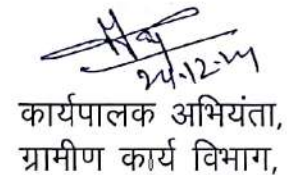 24.12.24
कार्यपालक अभियंता,
ग्रामीण कार्य विभाग,